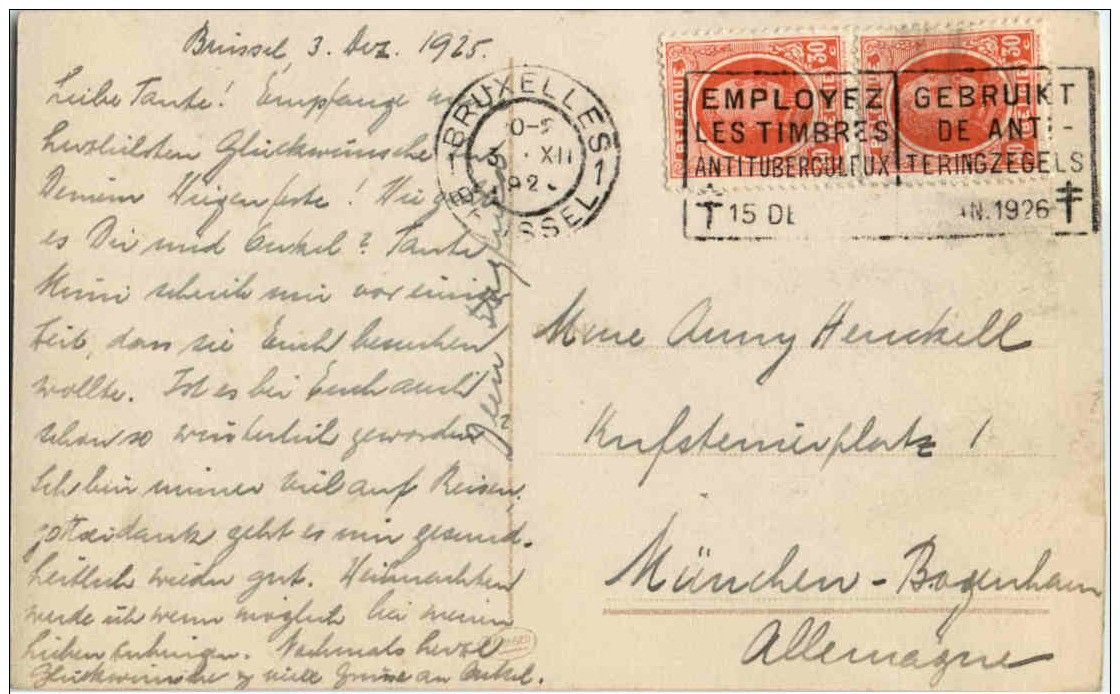 Brüssel, 3. Dez. 1925.
Liebe Tante! Empfange
herzlichsten Glückwünsche
Deinem Wiegenfeste! Wie geht
es Dir und Onkel? Tante
Mimi schrieb mir vor einiger
Zeit, dass sie Euch besuchen
wollte. Ist es bei Euch auch
schon so winterlich geworden?
Ich bin immer viel auf Reisen,
gottseidank geht es mir gesund-
heitlich wieder gut. Weihnachten
werde ich wenn möglich bei meinen
Lieben zubringen. Nochmals herzl
Glückwünsche & viele Grüsse an Onkel.
Dein
BRUXELLES 1
1
0-
XII
192
BELGIQUE
30
30
EMPLOYEZ
LES TIMBRES
ANTITUBERCULEUX
15 DE
GEBRUIKT
DE ANTI-
TERINGZEGELS
N. 1926
Mme Anny Henckell
Kufsteinerplatz 1
München-Bogenhausen
Allemagne